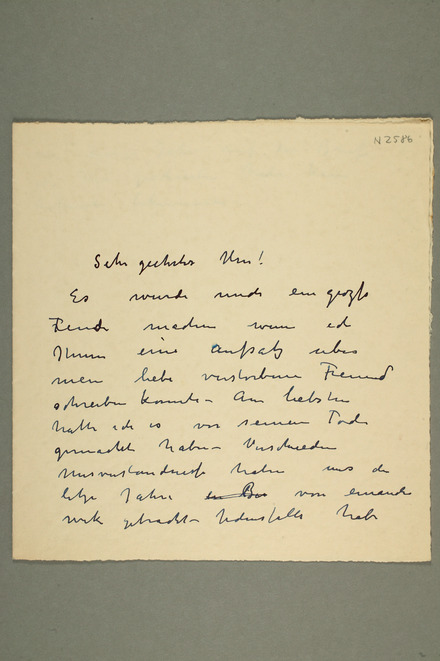 N 2586
Sehr geehrter Herr!
Es würde mich eine große
Freude machen wenn ich
Ihnen eine Aufsatz über
mein liebe verstorbene Freund
schreiben könnte – Am liebsten
hätte ich es vor seinem Tode
gemacht haben – Verschieden
Missverständnisse haben uns die
letze Jahre von einander
weck gebracht – Jedenfalls habe